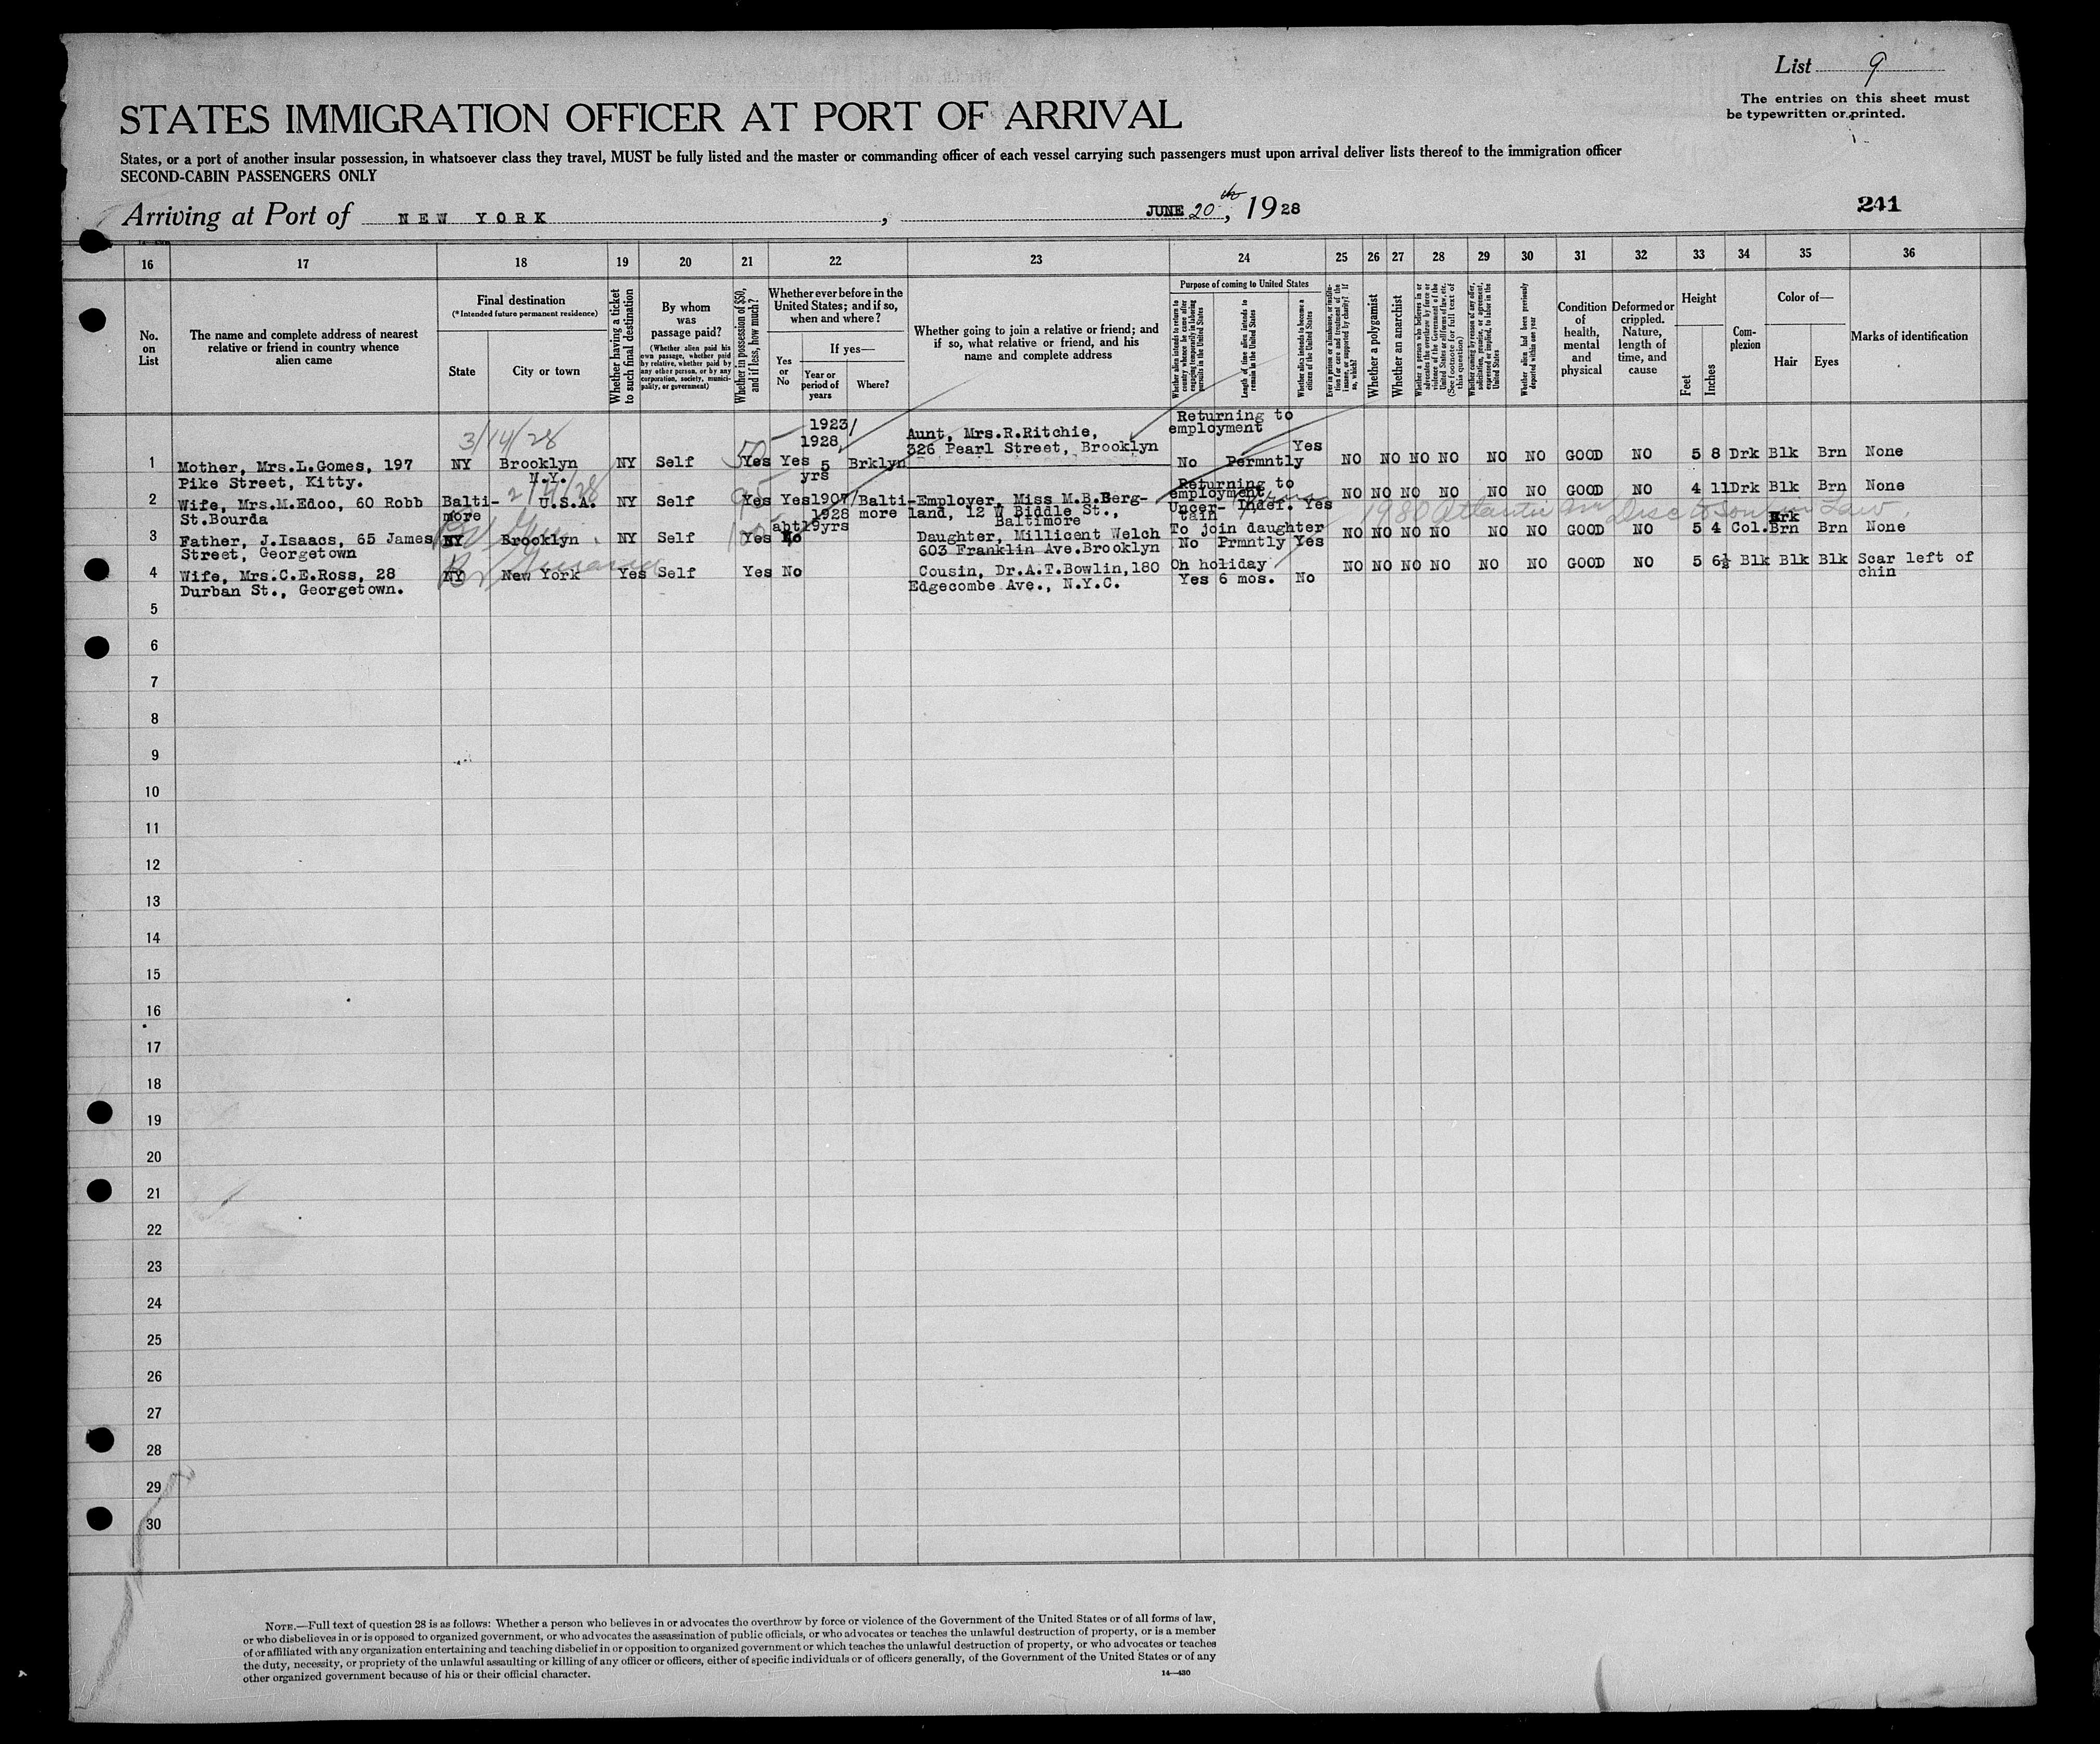 List 9
The entries on this sheet must
be typewritten or printed.
STATES IMMIGRATION OFFICER AT PORT OF ARRIVAL
States, or a port of another insular possession, in whatsoever class they travel, MUST be fully listed and the master or commanding officer of each vessel carrying such passengers must upon arrival deliver lists thereof to the immigration officer
SECOND-CABIN PASSENGERS ONLY
Arriving at Port of NEW YORK, JUNE 20th, 1928
241
16 17 18 19 20 21 22 23 24 25 26 27 28 29 30 31 32 33 34 35 36
No.
on
List
The name and complete address of nearest
relative or friend in country whence
alien came
Final destination
(*Intended future permanent residence)
State
City or town
Whether having a ticket
to such final destination
By whom
was
passage paid?
(Whether alien paid his
own passage, whether paid
by relative, whether paid by
any other person, or by any
corporation, society, munici-
pality, or government)
Whether in possession of $50,
and if less, how much?
Whether ever before in the
United States; and if so,
when and where?
Yes
or
No
If yes—
Year or
period of
years
Where?
Whether going to join a relative or friend; and
if so, what relative or friend, and his
name and complete address
Purpose of coming to United States
Whether alien intends to return to
country whence he came after
engaging temporarily in laboring
pursuits in the United States
Length of time alien intends to
remain in the United States
Whether alien intends to become a
citizen of the United States
Ever in prison or almshouse, or institu-
tion for care and treatment of the
insane, or supported by charity? If
so, which?
Whether a polygamist
Whether an anarchist
Whether a person who believes in or
advocates the overthrow by force or
violence of the Government of the
United States or all forms of law, etc.
(See footnote for full text of
this question)
Whether coming by reason of any offer,
solicitation, promise, or agreement,
expressed or implied, to labor in the
United States
Whether alien had been previously
deported within one year
Condition
of
health,
mental
and
physical
Deformed or
crippled.
Nature,
length of
time, and
cause
Height
Feet
Inches
Com-
plexion
Color of—
Hair
Eyes
Marks of identification
3/14/28
1923/
1928
Aunt, Mrs.R.Ritchie,
326 Pearl Street, Brooklyn
Returning to
employment
Yes
1 Mother, Mrs.L.Gomes, 197 NY Brooklyn NY Self 50 Yes Yes 5 Brklyn No Permntly NO NO NO NO NO NO GOOD NO 5 8 Drk Blk Brn None
Pike Street, Kitty. N.Y. yrs
2 Wife, Mrs.M.Edoo, 60 Robb Balti- U.S.A. NY Self Yes Yes 1907/ Balti- Employer, Miss M.B.Berg- Returning to
employment NO NO NO NO NO NO GOOD NO 4 11 Drk Blk Brn None
St.Bourda more 1928 more land, 12 W Biddle St., Uncer- Indef. Yes
abt19yrs Baltimore tain
3 Father, J.Isaacs, 65 James NY Brooklyn NY Self Yes No Daughter, Millicent Welch To join daughter NO NO NO NO NO NO GOOD NO 5 4 Col. Brn Brn None
Street, Georgetown 603 Franklin Ave.Brooklyn No Prmntly Yes
4 Wife, Mrs.C.E.Ross, 28 NY New York Yes Self Yes No Cousin, Dr.A.T.Bowlin,180 On holiday NO NO NO NO NO NO GOOD NO 5 6½ Blk Blk Blk Scar left of
chin
Durban St., Georgetown. Edgecombe Ave., N.Y.C. Yes 6 mos. No
5
6
7
8
9
10
11
12
13
14
15
16
17
18
19
20
21
22
23
24
25
26
27
28
29
30
NOTE.—Full text of question 28 is as follows: Whether a person who believes in or advocates the overthrow by force or violence of the Government of the United States or of all forms of law,
or who disbelieves in or is opposed to organized government, or who advocates the assassination of public officials, or who advocates or teaches the unlawful destruction of property, or is a member
of or affiliated with any organization entertaining and teaching disbelief in or opposition to organized government or which teaches the unlawful destruction of property, or who advocates or teaches
the duty, necessity, or propriety of the unlawful assaulting or killing of any officer or officers, either of specific individuals or of officers generally, of the Government of the United States or of any
other organized government because of his or their official character.
14—430